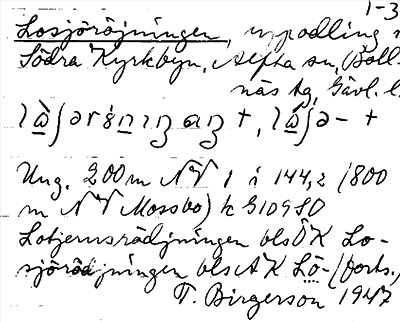 1-3
Losjöröjningen, uppodling
Södra Kyrkbyn, Alfta sn, Boll-
näs tg, Gävl. l.
Ung. 200 m NV 1 i 144,2 (800
m NV Mossbo) k G109 SO
Lotjernsrödjningen bls ÖK Lo-
sjörödjningen bls AK Lö- (forts.)
T. Birgerson 1947